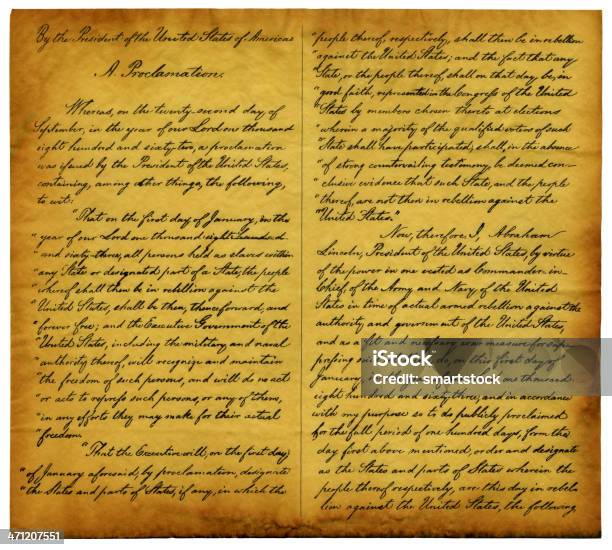 By the President of the United States of America:
A Proclamation.
Whereas, on the twenty-second day of
September, in the year of our Lord one thousand
eight hundred and sixty-two, a proclamation
was issued by the President of the United States,
containing, among other things, the following,
to wit:
"That on the first day of January, in the
"year of our Lord one thousand eight hundred
"and sixty-three, all persons held as slaves within
"any State or designated part of a State, the people
"whereof shall then be in rebellion against the
"United States, shall be then, thenceforward, and
"forever free; and the Executive Government of the
"United States, including the military and naval
"authority thereof, will recognize and maintain
"the freedom of such persons, and will do no act
"or acts to repress such persons, or any of them,
"in any efforts they may make for their actual
"freedom.
"That the Executive will, on the first day
"of January aforesaid, by proclamation, designate
"the States and parts of States, if any, in which the
"people thereof, respectively, shall then be in rebellion
"against the United States; and the fact that any
"State, or the people thereof, shall on that day be, in
"good faith, represented in the Congress of the United
"States by members chosen thereto at elections
"wherein a majority of the qualified voters of such
"State shall have participated, shall, in the absence
"of strong countervailing testimony, be deemed con-
"clusive evidence that such State, and the people
"thereof, are not then in rebellion against the
"United States."
Now, therefore, I, Abraham
Lincoln, President of the United States, by virtue
of the power in me vested as Commander-in-
Chief, of the Army and Navy of the United
States in time of actual armed rebellion against the
authority and government of the United States,
and as a fit and necessary war measure for sup-
pressing do, on this first day of
January, one thousand
eight hundred and sixty three, and in accordance
with my purpose so to do publicly proclaimed
for the full period of one hundred days, from the
day first above mentioned, order and designate
as the States and parts of States wherein the
people thereof respectively, are this day in rebel-
lion against the United States, the following
iStock
Credit: smartstock
471207551